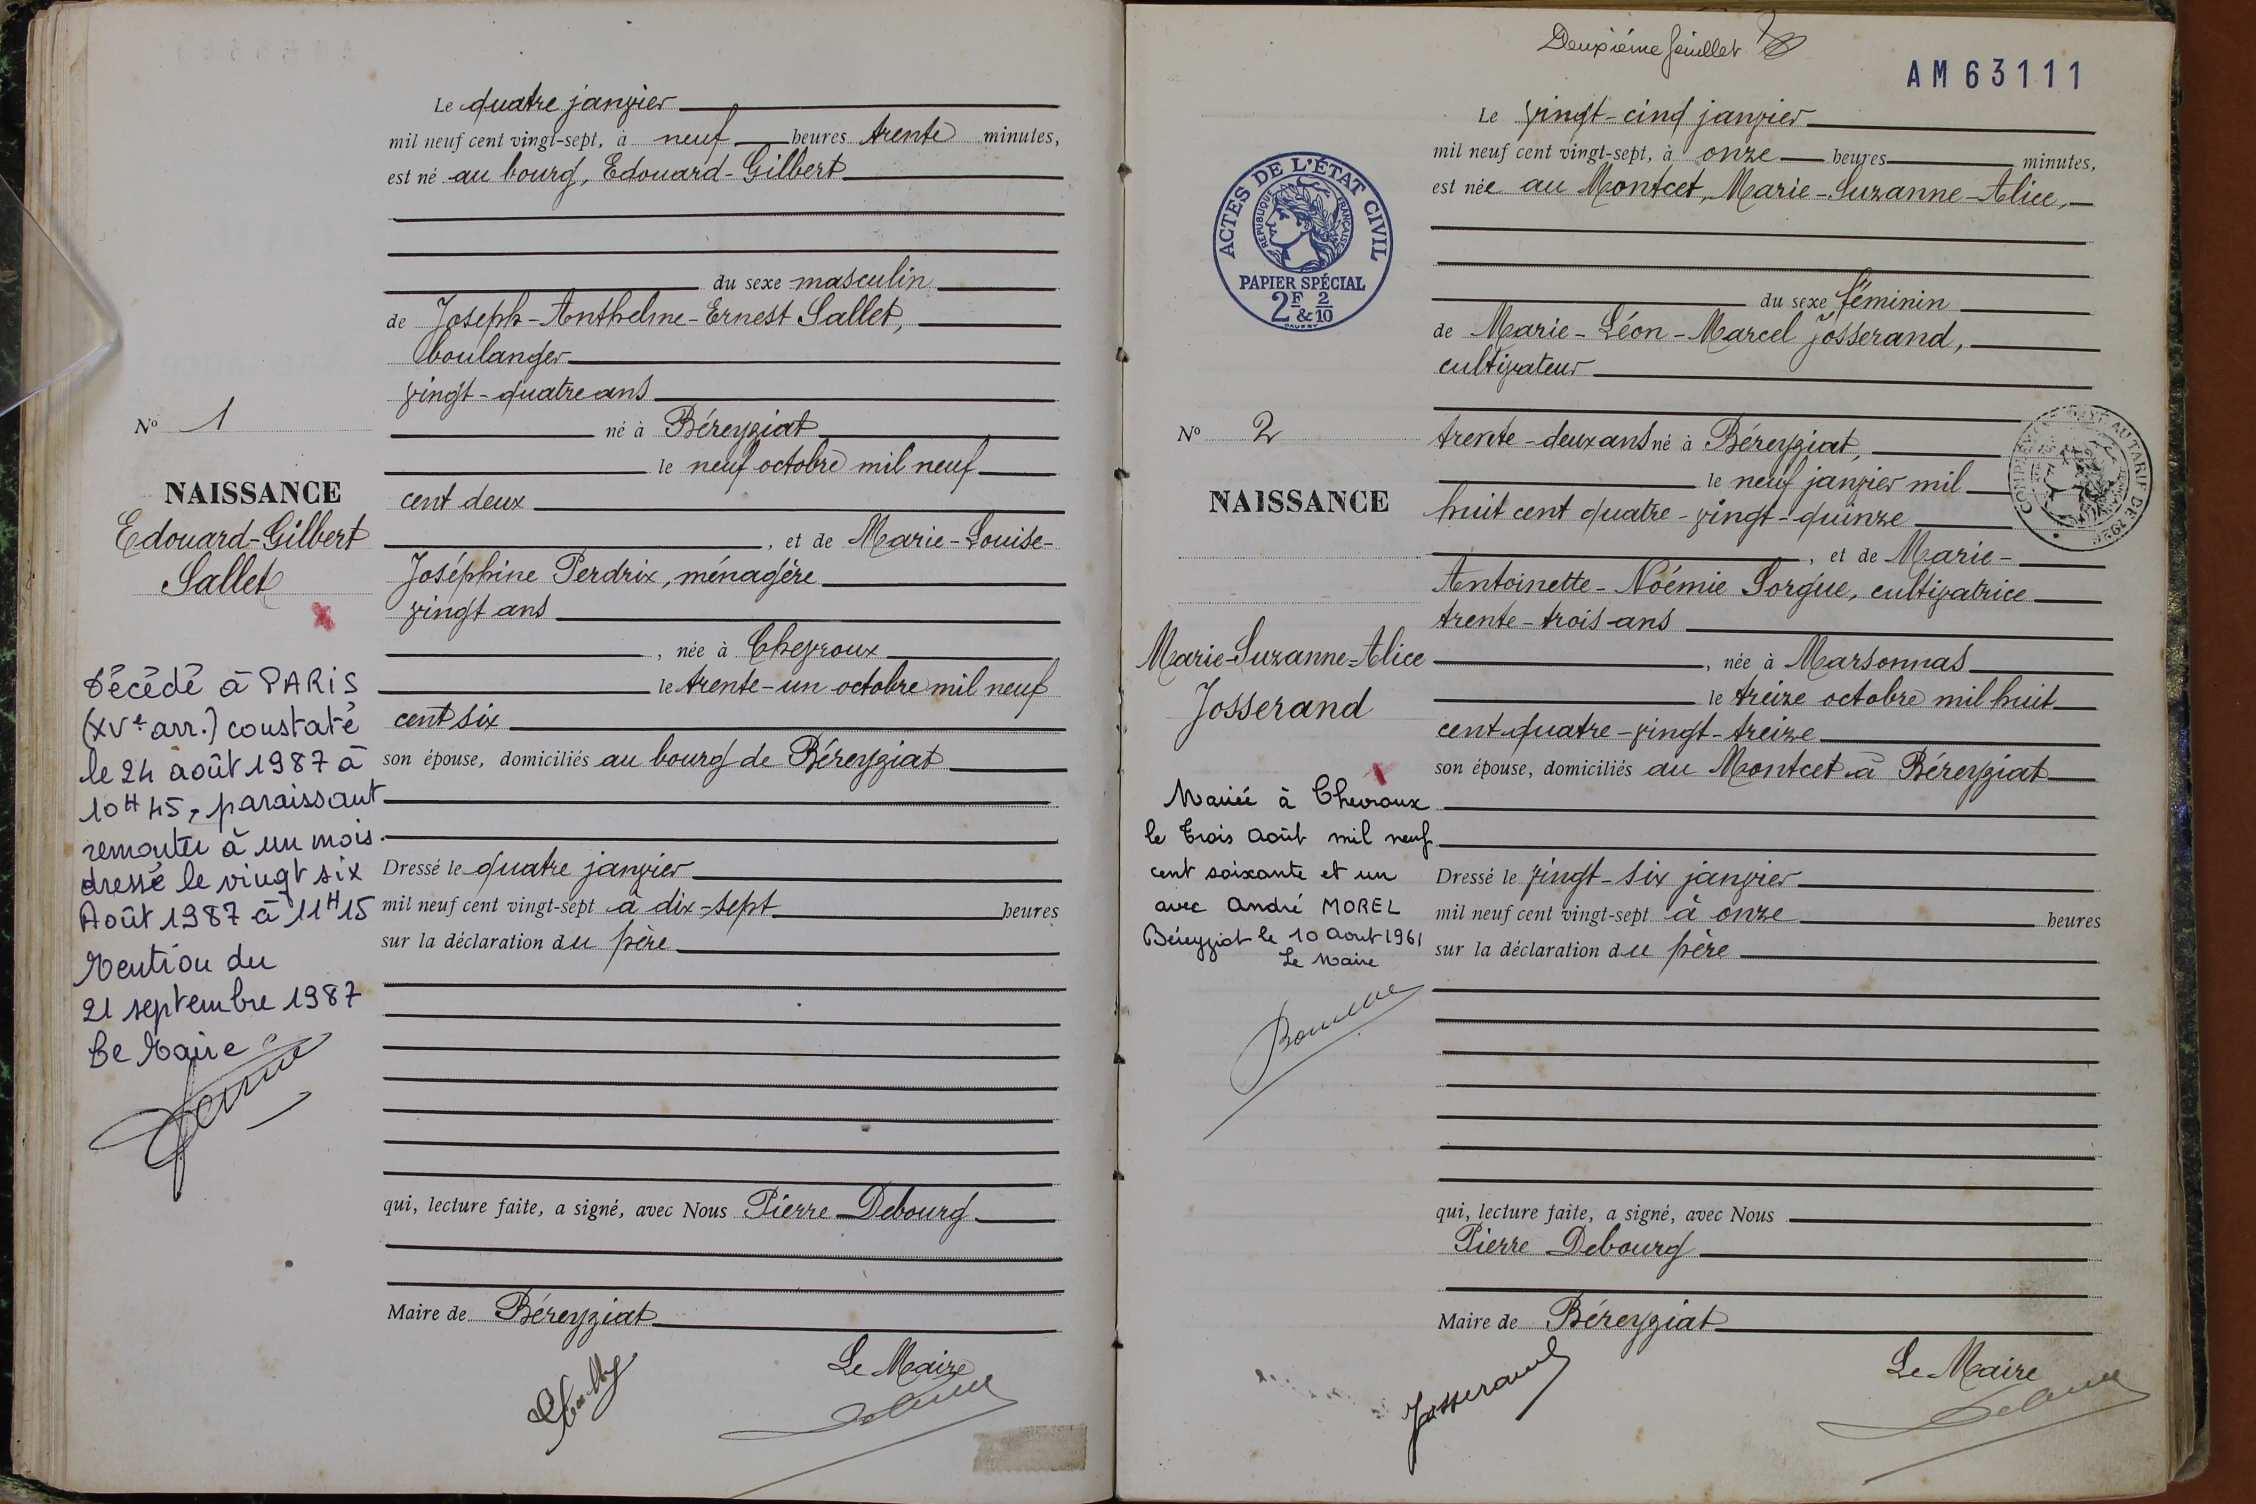 Le quatre janvier
mil neuf cent vingt-sept, à neuf heures trente minutes,
est né au bourg, Edouard-Gilbert
du sexe masculin
de Joseph-Anthelme-Ernest Sallet,
boulanger
vingt-quatre ans
né à Béreyziat
le neuf octobre mil neuf
cent deux
, et de Marie-Louise-
Joséphine Perdrix, ménagère
vingt ans
, née à Chevroux
le trente-un octobre mil neuf
cent six
son épouse, domiciliés au bourg de Béreyziat
Dressé le quatre janvier
mil neuf cent vingt-sept à dix-sept heures
sur la déclaration du père
qui, lecture faite, a signé, avec Nous Pierre Debourg
Maire de Béreyziat
Le Maire
No 1
NAISSANCE
Edouard-Gilbert
Sallet
Décédé à PARIS
(XVe arr.) constaté
le 24 août 1987 à
10H45, paraissant
remonter à un mois.
dressé le vingt six
Août 1987 à 11H15
Mention du
21 septembre 1987
Le Maire
Deuxième feuillet
AM63111
Le vingt-cinq janvier
mil neuf cent vingt-sept, à onze heures minutes,
est née au Montcet, Marie-Suzanne-Alice,
du sexe féminin
de Marie-Léon-Marcel Josserand,
cultivateur
trente-deux ans né à Béreyziat,
le neuf janvier mil
huit cent quatre-vingt-quinze
, et de Marie-
Antoinette-Noémie Sorgue, cultivatrice
trente-trois ans
, née à Marsonnas
le treize octobre mil huit
cent quatre-vingt-treize
son épouse, domiciliés au Montcet à Béreyziat
Dressé le vingt-six janvier
mil neuf cent vingt-sept à onze heures
sur la déclaration du père
qui, lecture faite, a signé, avec Nous
Pierre Debourg
Maire de Béreyziat
Le Maire
Josserand
ACTES DE L'ÉTAT CIVIL
RÉPUBLIQUE FRANÇAISE
PAPIER SPÉCIAL
2F & 2/10
No 2
NAISSANCE
Marie-Suzanne-Alice
Josserand
Mariée à Chevroux
le trois Août mil neuf
cent soixante et un
avec André MOREL
Béreyziat le 10 Aout 1961
Le Maire
AU TARIF DE 1926